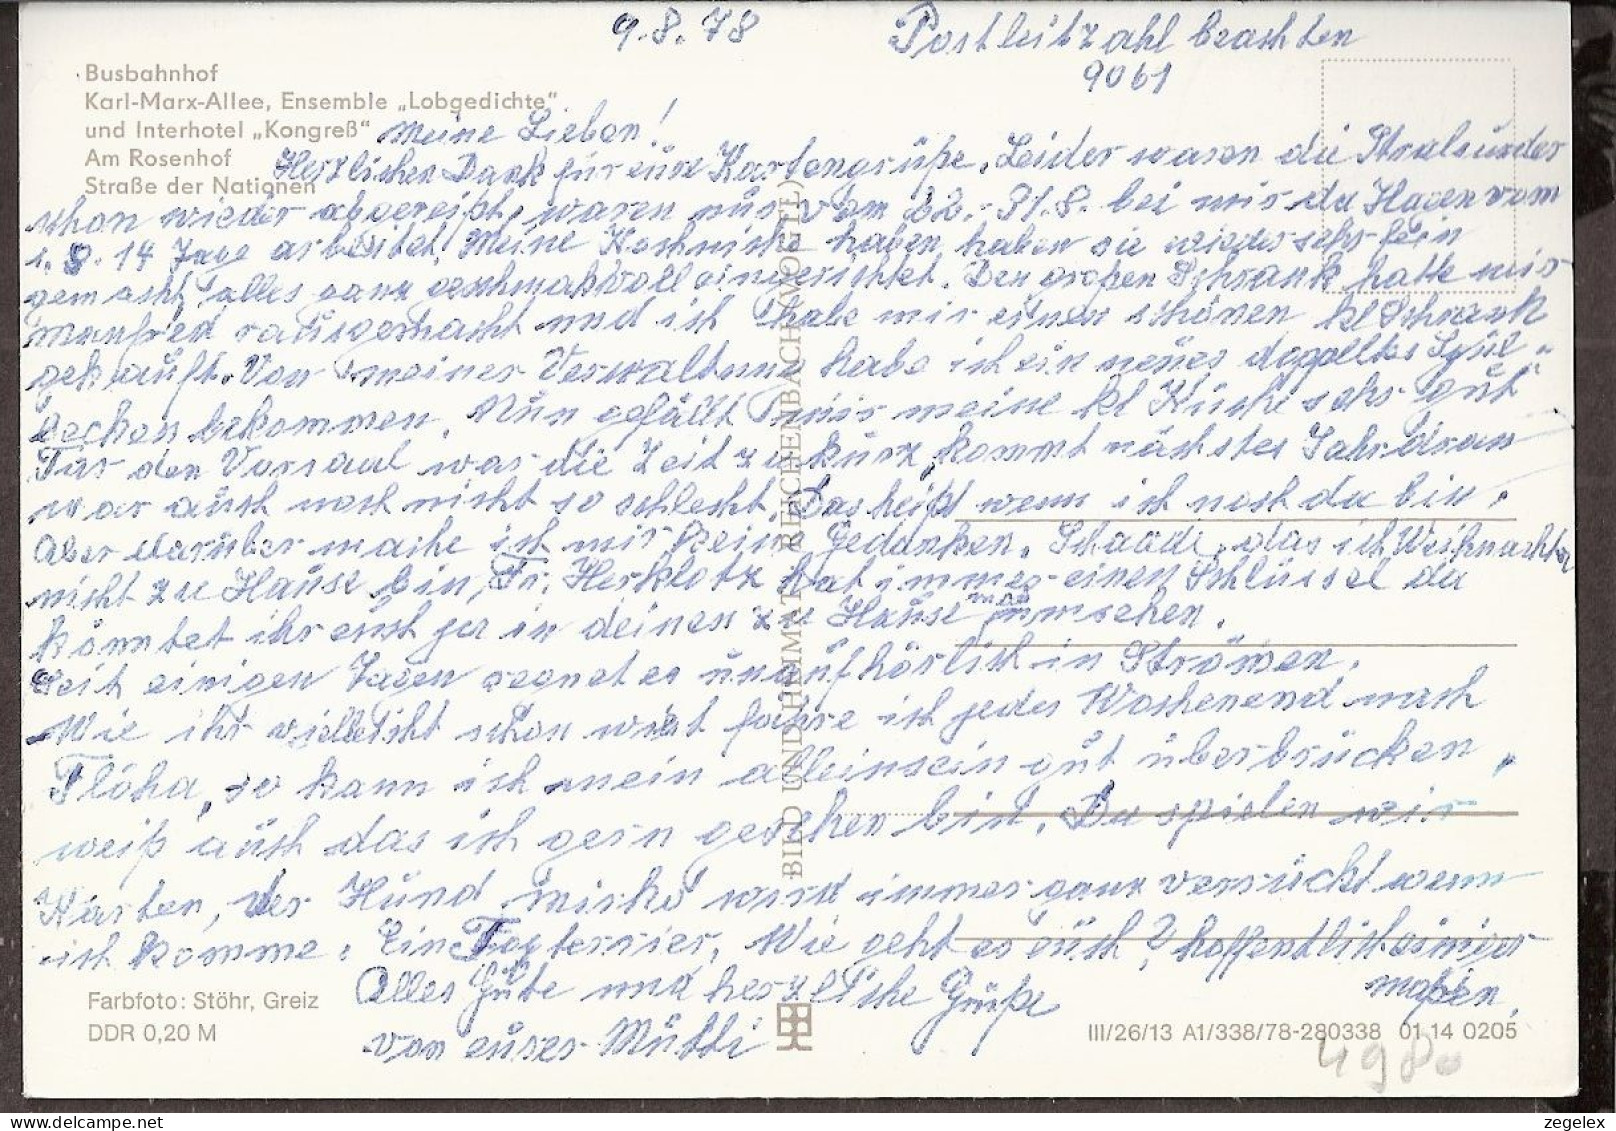 9.8.78 Postleitzahl beachten
9061
Busbahnhof
Karl-Marx-Allee, Ensemble „Lobgedichte"
und Interhotel „Kongreß"
Am Rosenhof
Straße der Nationen
Meine Lieben!
Herzlichen Dank für eure Kartengrüße. Leider waren die Stralsunder
schon wieder abgereißt, waren nur vom 22.-31.8. bei mir da Hagen vom
1.8. 14 Tage arbeitet. Meine Kochnische haben haben sie wieder sehr fein
gemacht, alles ganz geschmakvoll eingerichtet. Den großen Schrank hatte mir
Manfred rausgemacht und ich habe mir einen schönen kl Schrank
gekauft. Von meiner Verwaltung habe ich ein neues doppeltes Spül-
becken bekommen. Nun gefällt mir meine kl Küche sehr gut
Für den Vorsaal war die Zeit zu kurz, kommt nächstes Jahr dran
war auch noch nicht so schlecht. Das heißt wenn ich noch da bin.
Aber darüber mache ich mir kein Gedanken. Schade, das ich Weihnachten
nicht zu Hause bin, Fr. Herklotz hat immer einen Schlüssel da
könntet ihr euch ja in deinen zu Hause mal umsehen.
Seit einigen Tagen regnet es unaufhörlich in Strömen.
Wie ihr vielleicht schon wißt fahre ich jedes Wochenend nach
Flöha, so kann ich mein alleinsein gut überbrücken,
weiß auch das ich gern gesehen bin. Da spielen wir
Karten, der Hund wird immer ganz verrückt wenn
ich komme. Ein Foxterrier. Wie geht es euch? hoffentlich einiger
maßen.
Alles Gute und herzliche Grüße
von eurer Mutti
BILD UND HEIMAT REICHENBACH (VOGTL)
Farbfoto: Stöhr, Greiz
DDR 0,20 M
III/26/13 A1/338/78-280338 01 14 0205
zegelex